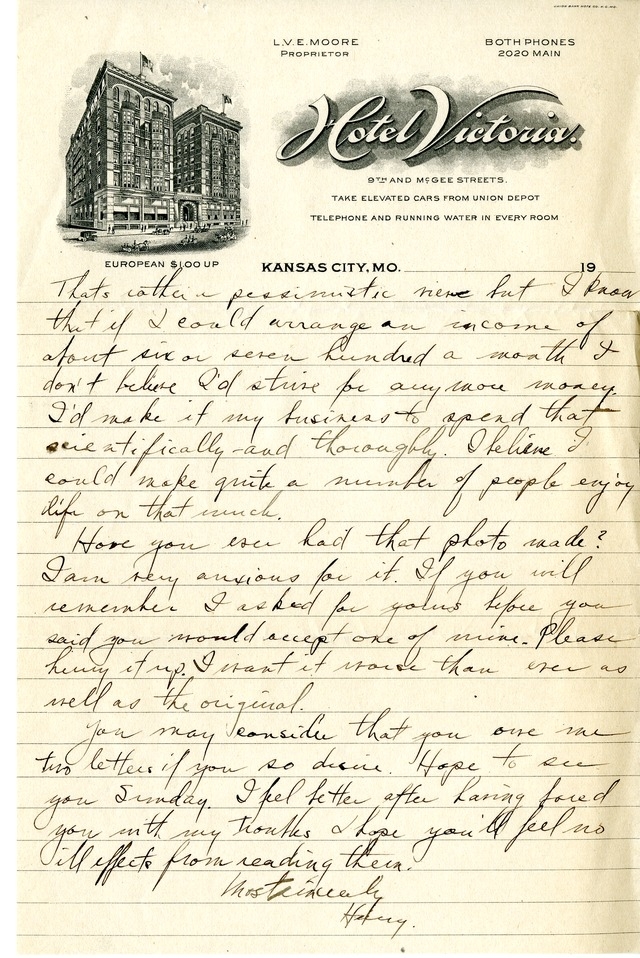 UNION BANK NOTE CO. K.C. MO.
L.V.E. MOORE
PROPRIETOR
BOTH PHONES
2020 MAIN
Hotel Victoria.
9TH AND McGEE STREETS.
TAKE ELEVATED CARS FROM UNION DEPOT
TELEPHONE AND RUNNING WATER IN EVERY ROOM
EUROPEAN $1.00 UP
KANSAS CITY, MO. 19
Thats rather a pessimistic view but I know
that if I could arrange an income of
about six or seven hundred a month I
don't believe I'd strive for any more money.
I'd make it my business to spend that
scientifically and thoroughly. I believe I
could make quite a number of people enjoy
life on that much.
Have you ever had that photo made?
I am very anxious for it. If you will
remember I asked for yours before you
said you would accept one of mine. Please
hurry it up. I want it worse than ever as
well as the original.
You may consider that you owe me
two letters if you so desire. Hope to see
you Sunday. I feel better after having bored
you with my troubles I hope you'll feel no
ill effects from reading them.
Most sincerely
Harry.